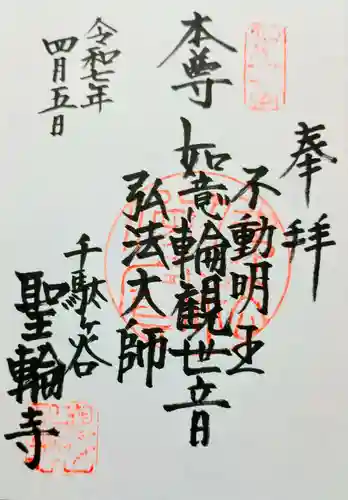 奉拝
不動明王
本尊
如意輪観世音
弘法大師
令和七年
四月五日
千駄ヶ谷
聖輪寺